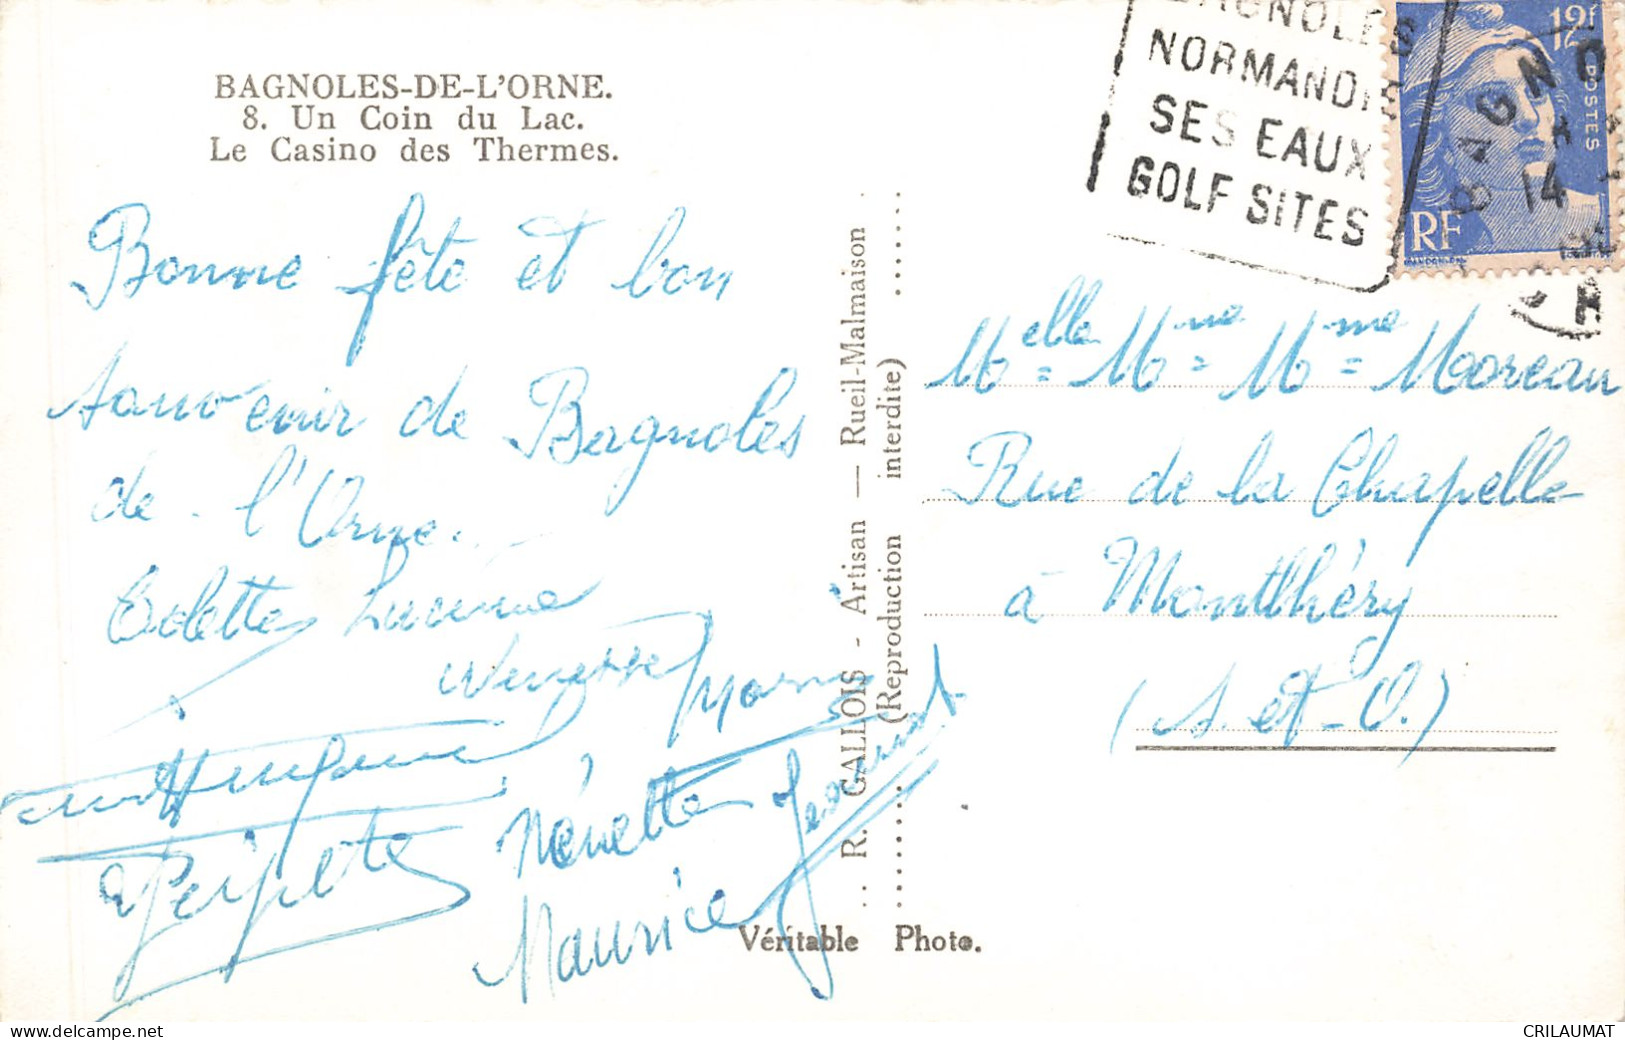 BAGNOLES-DE-L'ORNE.
8. Un Coin du Lac.
Le Casino des Thermes.
Bonne fête et bon
souvenir de Bagnoles
de l'Orne.
Odette Lucienne
Nénette
Maurice
R. GALLOIS - Artisan — Rueil-Malmaison
(Reproduction interdite)
Véritable Photo.
NORMANDIE
SES EAUX
GOLF SITES
12f
POSTES
RF
BAGNO
14
Melle = Mme = Mme Moreau
Rue de la Chapelle
à Montlhéry
(S. et-O.)
www.delcampe.net
CRILAUMAT